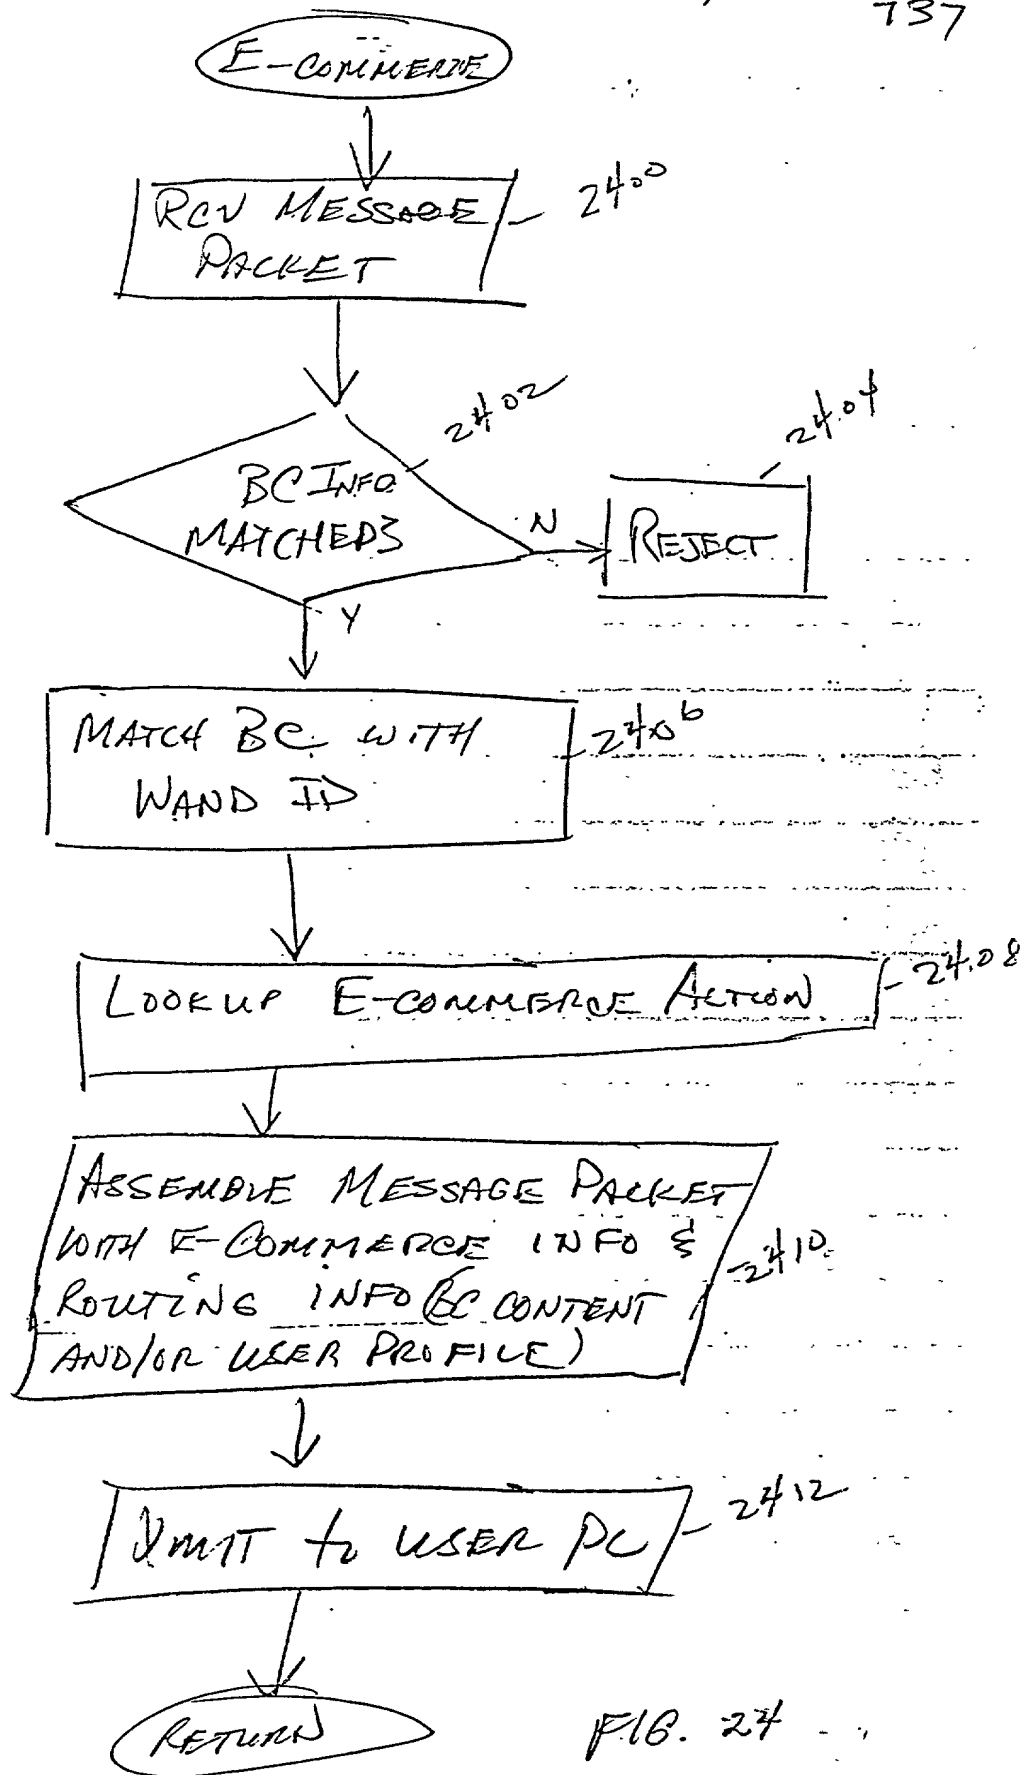 737
E-COMMERCE
RCV MESSAGE
PACKET
2400
2402
BC INFO
MATCHED?
N
2404
REJECT
Y
MATCH BC WITH
WAND ID
2406
LOOKUP E-COMMERCE ACTION
2408
ASSEMBLE MESSAGE PACKET
WITH E-COMMERCE INFO &
ROUTING INFO (BC CONTENT
AND/OR USER PROFILE)
2410
XMIT to USER PC
2412
RETURN
FIG. 24